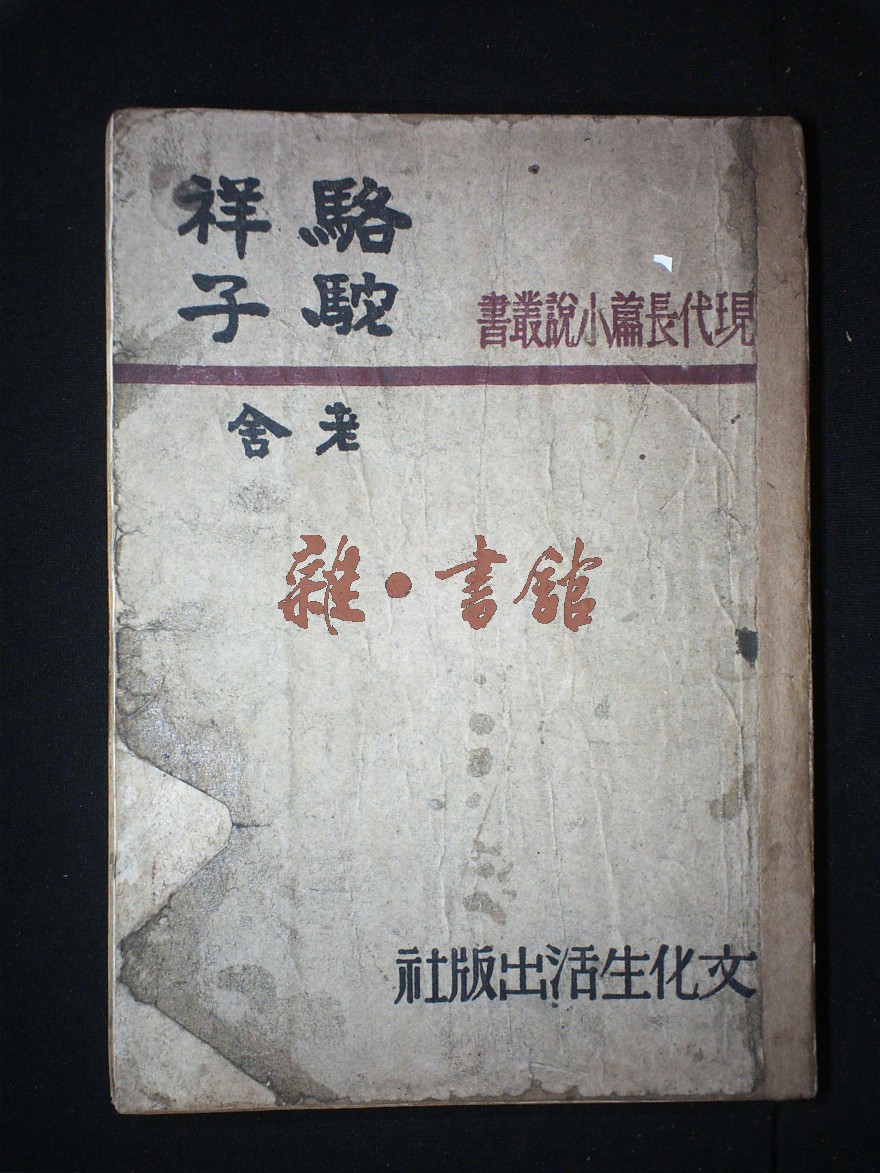 駱駝
祥子
現代長篇小說叢書
老舍
雜·書舘
文化生活出版社